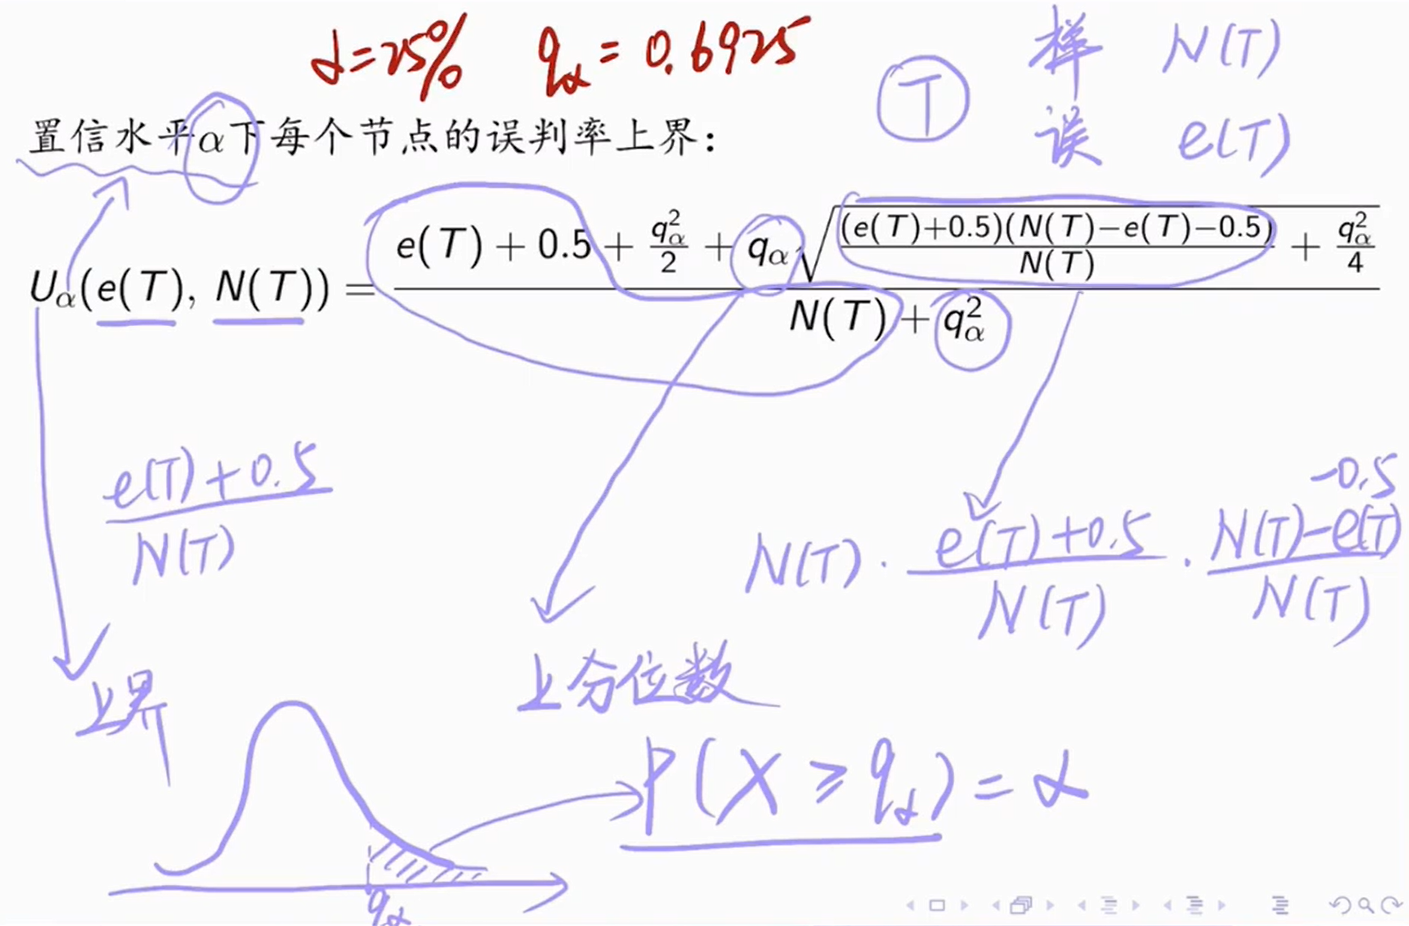 α=25% qα = 0.6925
样 N(T)
T
误 e(T)
置信水平α下每个节点的误判率上界：
Uα(e(T), N(T)) = \frac{e(T) + 0.5 + \frac{q_α^2}{2} + q_α \sqrt{\frac{(e(T)+0.5)(N(T)−e(T)−0.5)}{N(T)} + \frac{q_α^2}{4}}}{N(T) + q_α^2}
\frac{e(T)+0.5}{N(T)}
N(T) · \frac{e(T)+0.5}{N(T)} · \frac{N(T)-e(T)-0.5}{N(T)}
上界
上分位数
P(X ≥ qα) = α
qα